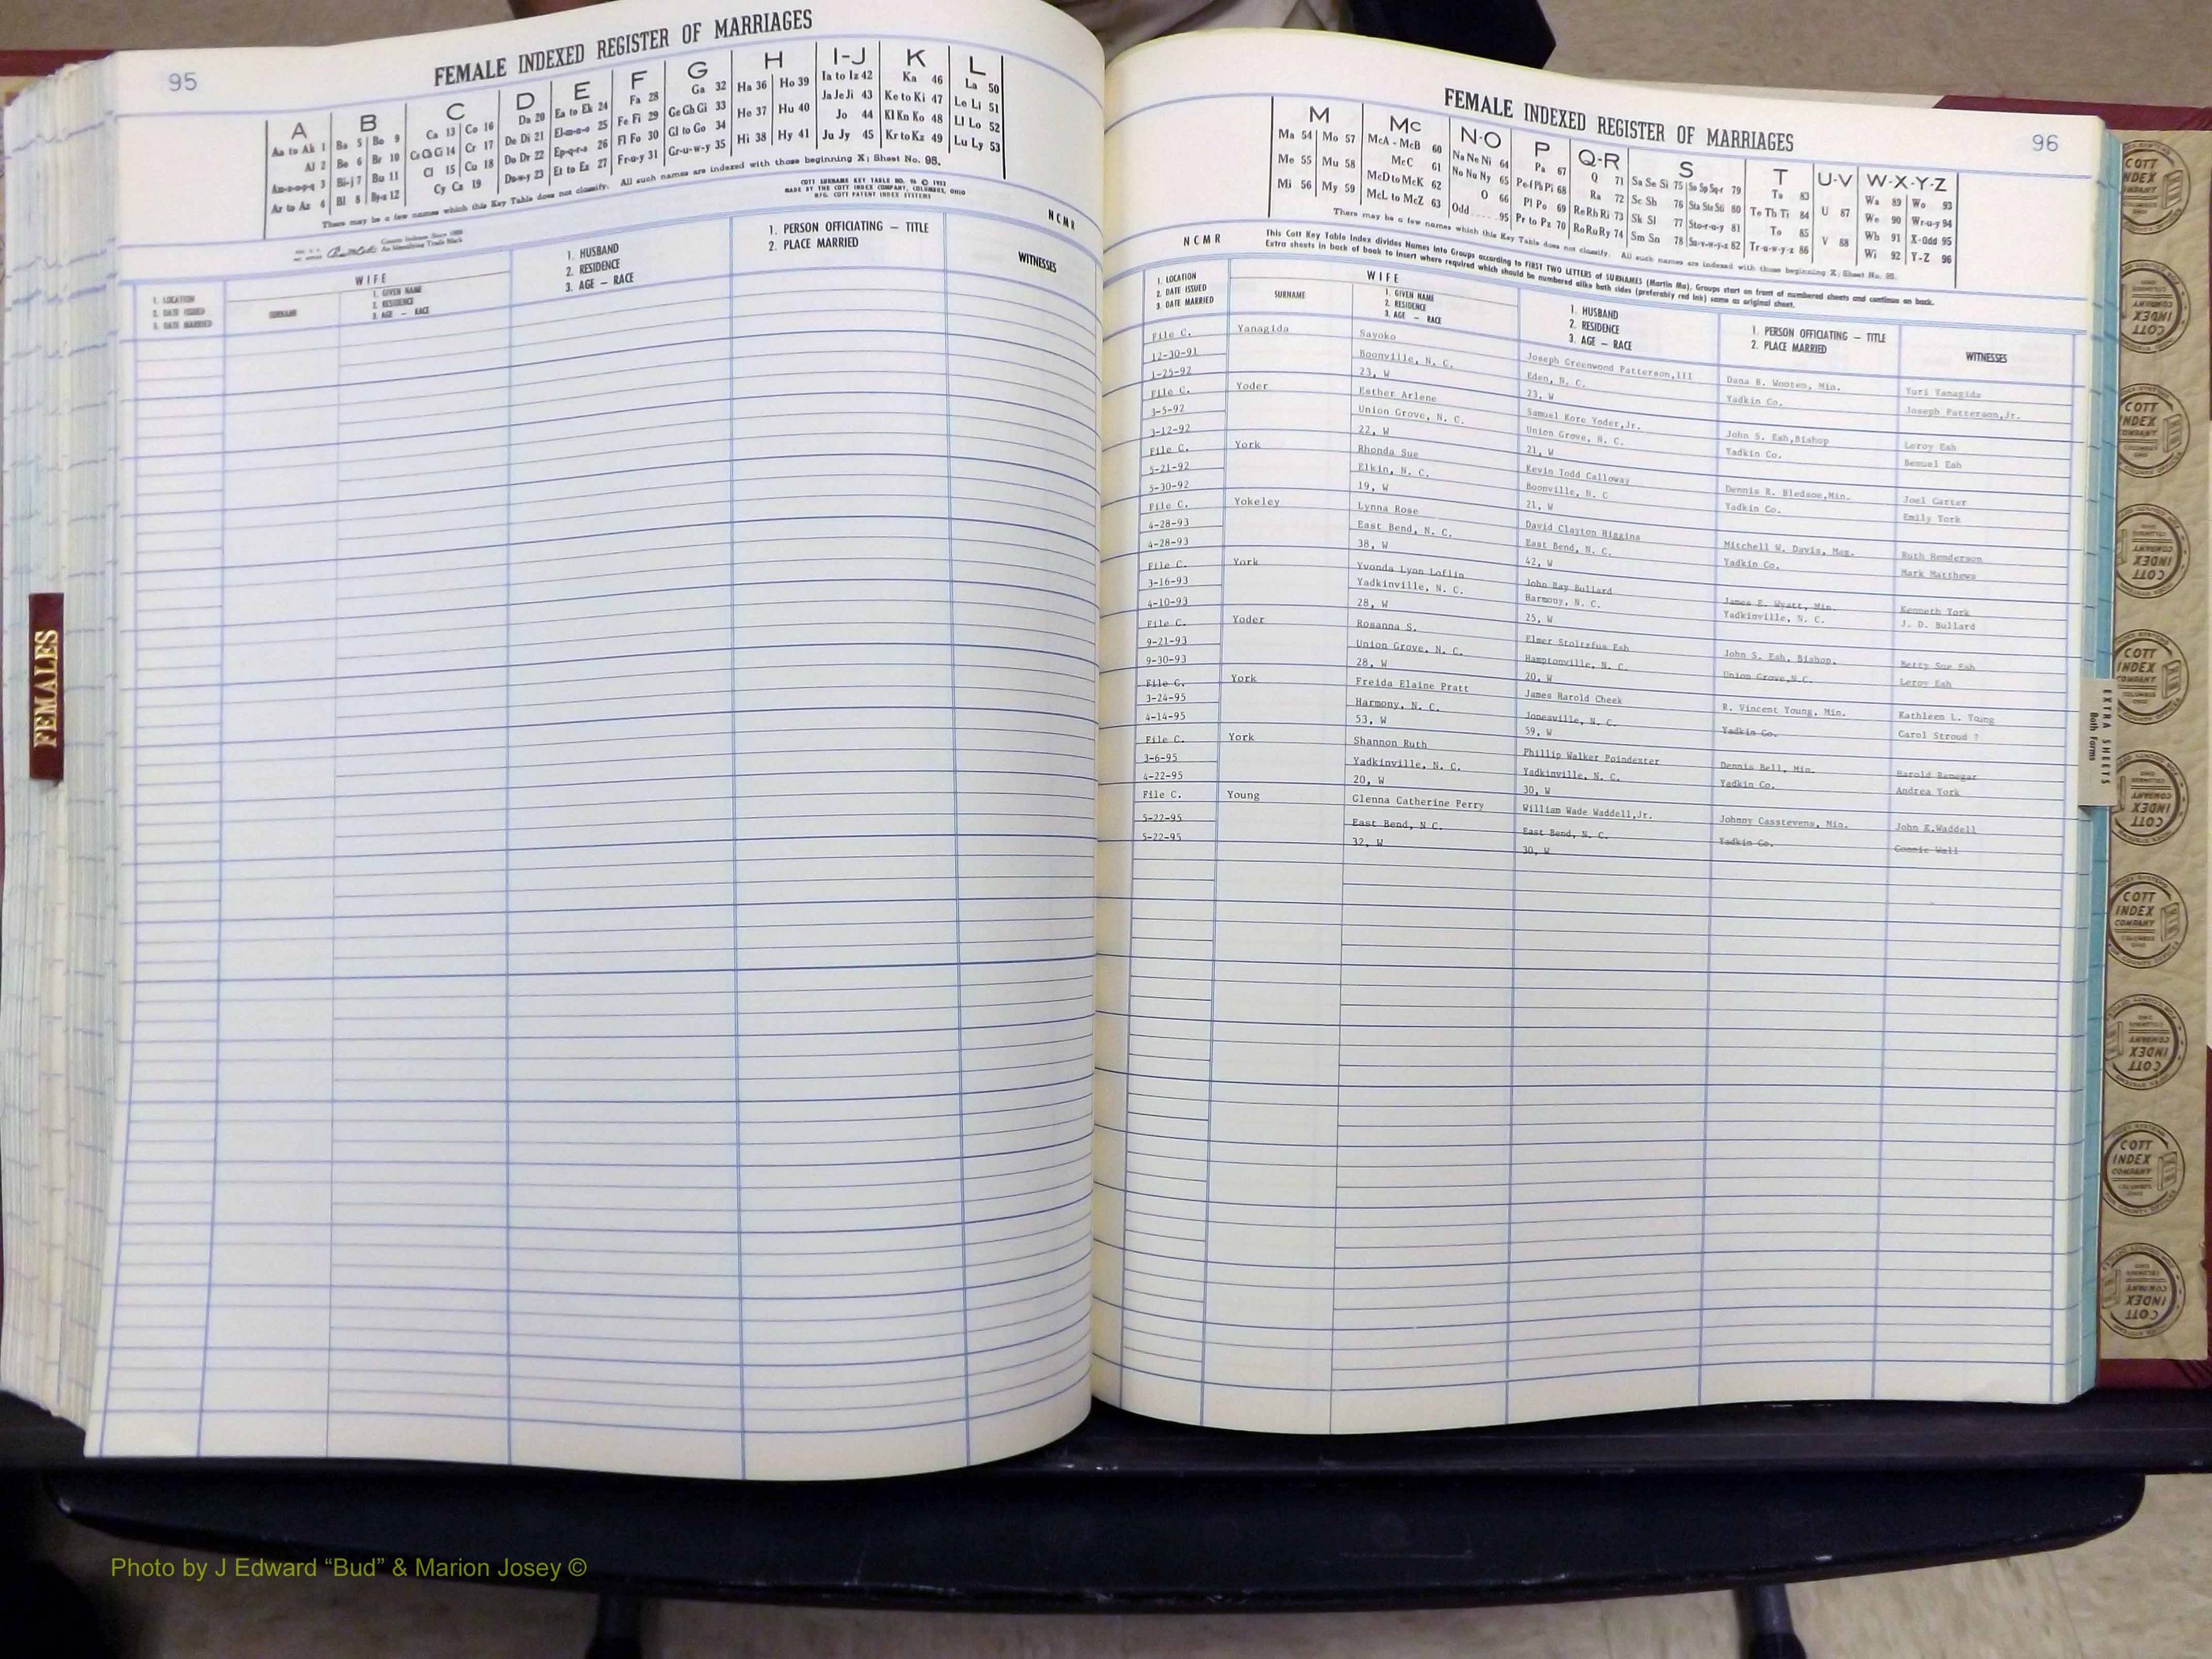 95
FEMALE INDEXED REGISTER OF MARRIAGES
A B C D E F G H I-J K L
Aa to Ak 1 Ba 5 Bo 9 Ca 13 Co 16 Da 20 Ea to Ek 24 Fa 28 Ga 32 Ha 36 Ho 39 Ia to Iz 42 Ka 46 La 50
Al 2 Be 6 Br 10 Ce Ch Ci 14 Cr 17 De Di 21 El-m-n-o 25 Fe Fi 29 Ge Gh Gi 33 He 37 Hu 40 Ja Je Ji 43 Ke to Ki 47 Le Li 51
An-o-p-q 3 Bi-j 7 Bu 11 Cl 15 Cu 18 Do Dr 22 Ep-q-r-s 26 Fl Fo 30 Gl to Go 34 Hi 38 Hy 41 Jo 44 Kl Kn Ko 48 Ll Lo 52
Ar to Az 4 Bl 8 By-z 12 Cy Cz 19 Du-w-y 23 Et to Ez 27 Fr-u-y 31 Gr-u-w-y 35 Ju Jy 45 Kr to Kz 49 Lu Ly 53
There may be a few names which this Key Table does not classify. All such names are indexed with those beginning X; Sheet No. 95.
COTT SURNAME KEY TABLE NO. 96 © 1953
MADE BY THE COTT INDEX COMPANY, COLUMBUS, OHIO
MFG. COTT PATENT INDEX SYSTEMS
NCMR
1. LOCATION
2. DATE ISSUED
3. DATE MARRIED
WIFE
SURNAME
1. GIVEN NAME
2. RESIDENCE
3. AGE – RACE
1. HUSBAND
2. RESIDENCE
3. AGE – RACE
1. PERSON OFFICIATING – TITLE
2. PLACE MARRIED
WITNESSES
FEMALES
FEMALE INDEXED REGISTER OF MARRIAGES
96
M Mc N-O P Q-R S T U-V W-X-Y-Z
Ma 54 Mo 57 McA - McB 60 Na Ne Ni 64 Pa 67 Q 71 Sa Se Si 75 So Sp Sq-r 79 Ta 83 U 87 Wa 89 Wo 93
Me 55 Mu 58 McC 61 No Nu Ny 65 Pe-f Ph Pi 68 Ra 72 Sc Sh 76 Sta Ste Sti 80 Te Th Ti 84 V 88 We 90 Wr-u-y 94
Mi 56 My 59 McD to McK 62 O 66 Pl Po 69 Re Rh Ri 73 Sk Sl 77 Sto-r-u-y 81 To 85 Wh 91 X-Odd 95
McL to McZ 63 Odd 95 Pr to Pz 70 Ro Ru Ry 74 Sm Sn 78 Su-v-w-y-z 82 Tr-u-w-y-z 86 Wi 92 Y-Z 96
There may be a few names which this Key Table does not classify. All such names are indexed with those beginning X; Sheet No. 95.
This Cott Key Table Index divides Names into Groups according to FIRST TWO LETTERS of SURNAMES (Martin Ma). Groups start on front of numbered sheets and continue on back.
Extra sheets in back of book to insert where required which should be numbered alike both sides (preferably red ink) same as original sheet.
NCMR
1. LOCATION
2. DATE ISSUED
3. DATE MARRIED
WIFE
SURNAME
1. GIVEN NAME
2. RESIDENCE
3. AGE – RACE
1. HUSBAND
2. RESIDENCE
3. AGE – RACE
1. PERSON OFFICIATING – TITLE
2. PLACE MARRIED
WITNESSES
File C. Yanagida Sayoko Joseph Greenwood Patterson,III Dana B. Wooten, Min. Yuri Yanagida
12-30-91 Boonville, N. C. Eden, N. C. Yadkin Co. Joseph Patterson,Jr.
1-25-92 23, W 23, W
File C. Yoder Esther Arlene Samuel Kore Yoder,Jr. John S. Esh,Bishop Leroy Esh
3-5-92 Union Grove, N. C. Union Grove, N. C. Yadkin Co. Bemuel Esh
3-12-92 22, W 21, W
File C. York Rhonda Sue Kevin Todd Calloway Dennis R. Bledsoe,Min. Joel Carter
5-21-92 Elkin, N. C. Boonville, N. C Yadkin Co. Emily York
5-30-92 19, W 21, W
File C. Yokeley Lynna Rose David Clayton Higgins Mitchell W. Davis, Mag. Ruth Henderson
4-28-93 East Bend, N. C. East Bend, N. C. Yadkin Co. Mark Matthews
4-28-93 38, W 42, W
File C. York Yvonda Lynn Loflin John Ray Bullard James E. Wyatt, Min. Kenneth York
3-16-93 Yadkinville, N. C. Harmony, N. C. Yadkinville, N. C. J. D. Bullard
4-10-93 28, W 25, W
File C. Yoder Rosanna S. Elmer Stoltzfus Esh John S. Esh, Bishop. Betty Sue Esh
9-21-93 Union Grove, N. C. Hamptonville, N. C. Union Grove,N.C. Leroy Esh
9-30-93 28, W 20, W
File C. York Freida Elaine Pratt James Harold Cheek R. Vincent Young, Min. Kathleen L. Young
3-24-95 Harmony, N. C. Jonesville, N. C. Yadkin Co. Carol Stroud ?
4-14-95 53, W 59, W
File C. York Shannon Ruth Phillip Walker Poindexter Dennis Bell, Min. Harold Renegar
3-6-95 Yadkinville, N. C. Yadkinville, N. C. Yadkin Co. Andrea York
4-22-95 20, W 30, W
File C. Young Glenna Catherine Perry William Wade Waddell,Jr. Johnny Casstevens, Min. John K.Waddell
5-22-95 East Bend, N C. East Bend, N. C. Yadkin Co. Connie Wall
5-22-95 32, W 30, W
EXTRA SHEETS
Both Forms
COTT
INDEX
COMPANY
Photo by J Edward “Bud” & Marion Josey ©